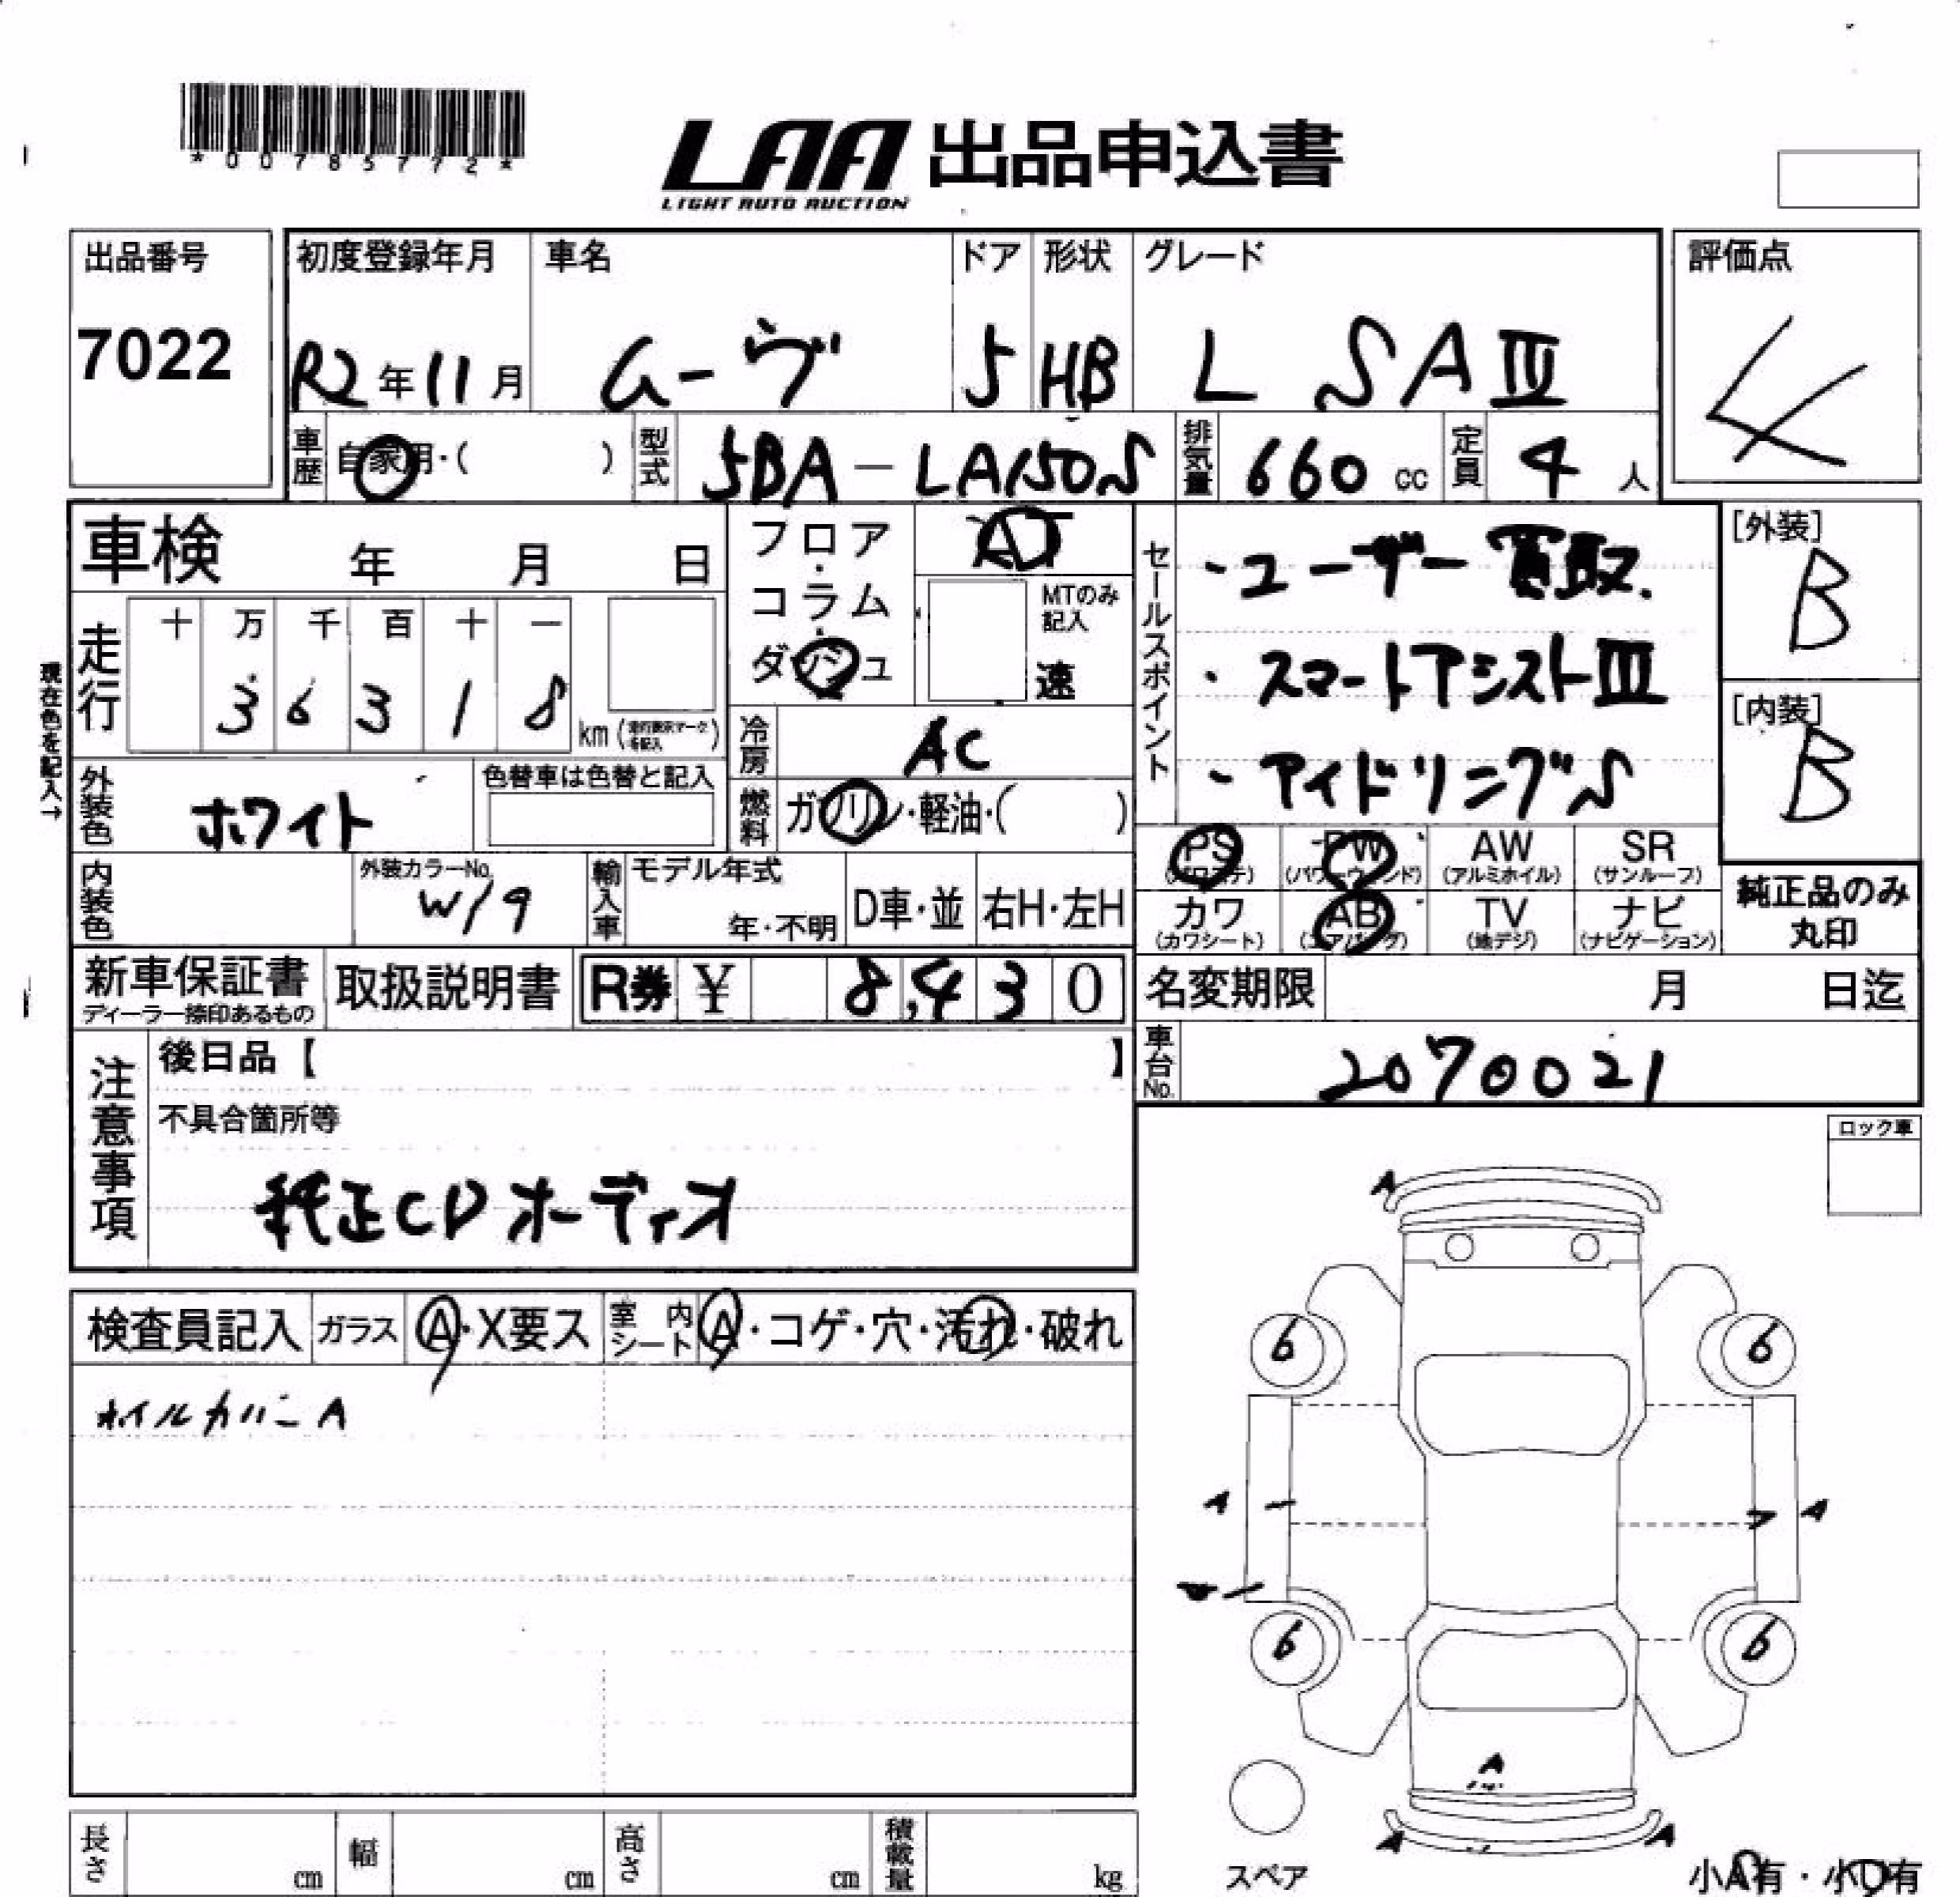 *00785772*
LAA 出品申込書
LIGHT AUTO AUCTION
出品番号
7022
初度登録年月
R2年11月
車名
ムーヴ
ドア
5
形状
HB
グレード
L SAⅢ
評価点
4
車歴
自家用・( )
型式
5BA-LA150S
排気量
660 cc
定員
4 人
車検 年 月 日
フロア・コラム・ダッシュ
AT
MTのみ記入
速
走行
十 万 千 百 十 一
3 6 3 1 8
km
現在色を記入→
冷房
AC
外装色
ホワイト
色替車は色替と記入
燃料
ガソリン・軽油・( )
内装色
外装カラーNo.
W19
輸入車
モデル年式
年・不明
D車・並
右H・左H
セールスポイント
・ユーザー買取.
・スマートアシストⅢ
・アイドリングS
[外装]
B
[内装]
B
PS
(パワステ)
PW
(パワーウィンド)
AW
(アルミホイル)
SR
(サンルーフ)
カワ
(カワシート)
AB
(エアバッグ)
TV
(地デジ)
ナビ
(ナビゲーション)
純正品のみ
丸印
新車保証書
ディーラー捺印あるもの
取扱説明書
R券 ¥ 8,430
名変期限 月 日迄
車台No.
2070021
注意事項
後日品【 】
不具合箇所等
純正CDオーディオ
ロック車
検査員記入
ガラス
A・X要ス
室内シート
A・コゲ・穴・汚れ・破れ
ホイルカバーA
A
6
6
A
A
6
6
A
A
A
スペア
小A有・小U有
長さ cm
幅 cm
高さ cm
積載量 kg